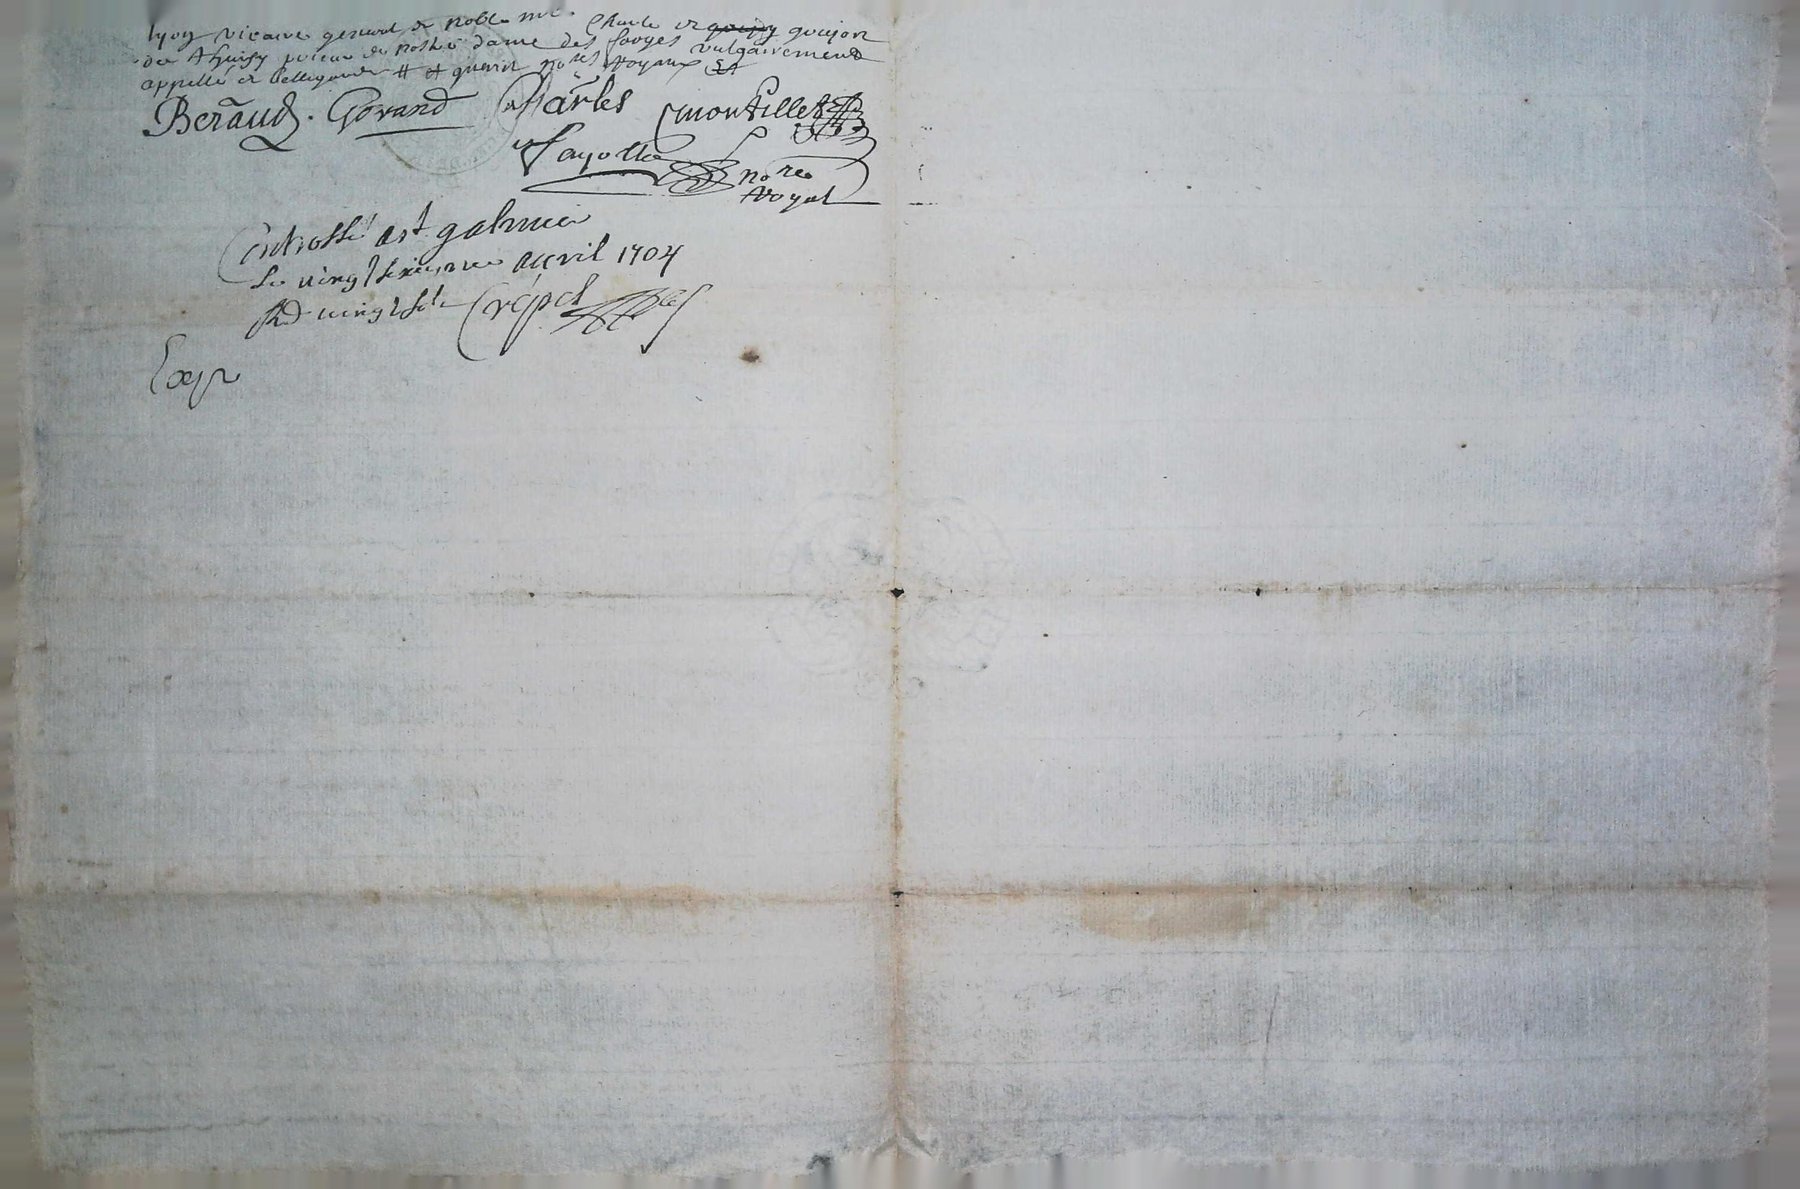 lyon vicaire general de noble mre Charle de goujon
de Thuisy prieur de nostre dame des forges vulgairement
appellé de bellegarde # et guerin nores Royaux
Beraud. Govand Charles Montillet
Fayolle nore
Royal
Controllé a st galmier
le vingt sixieme avril 1704
Rd vingt sols Crépet
Exp